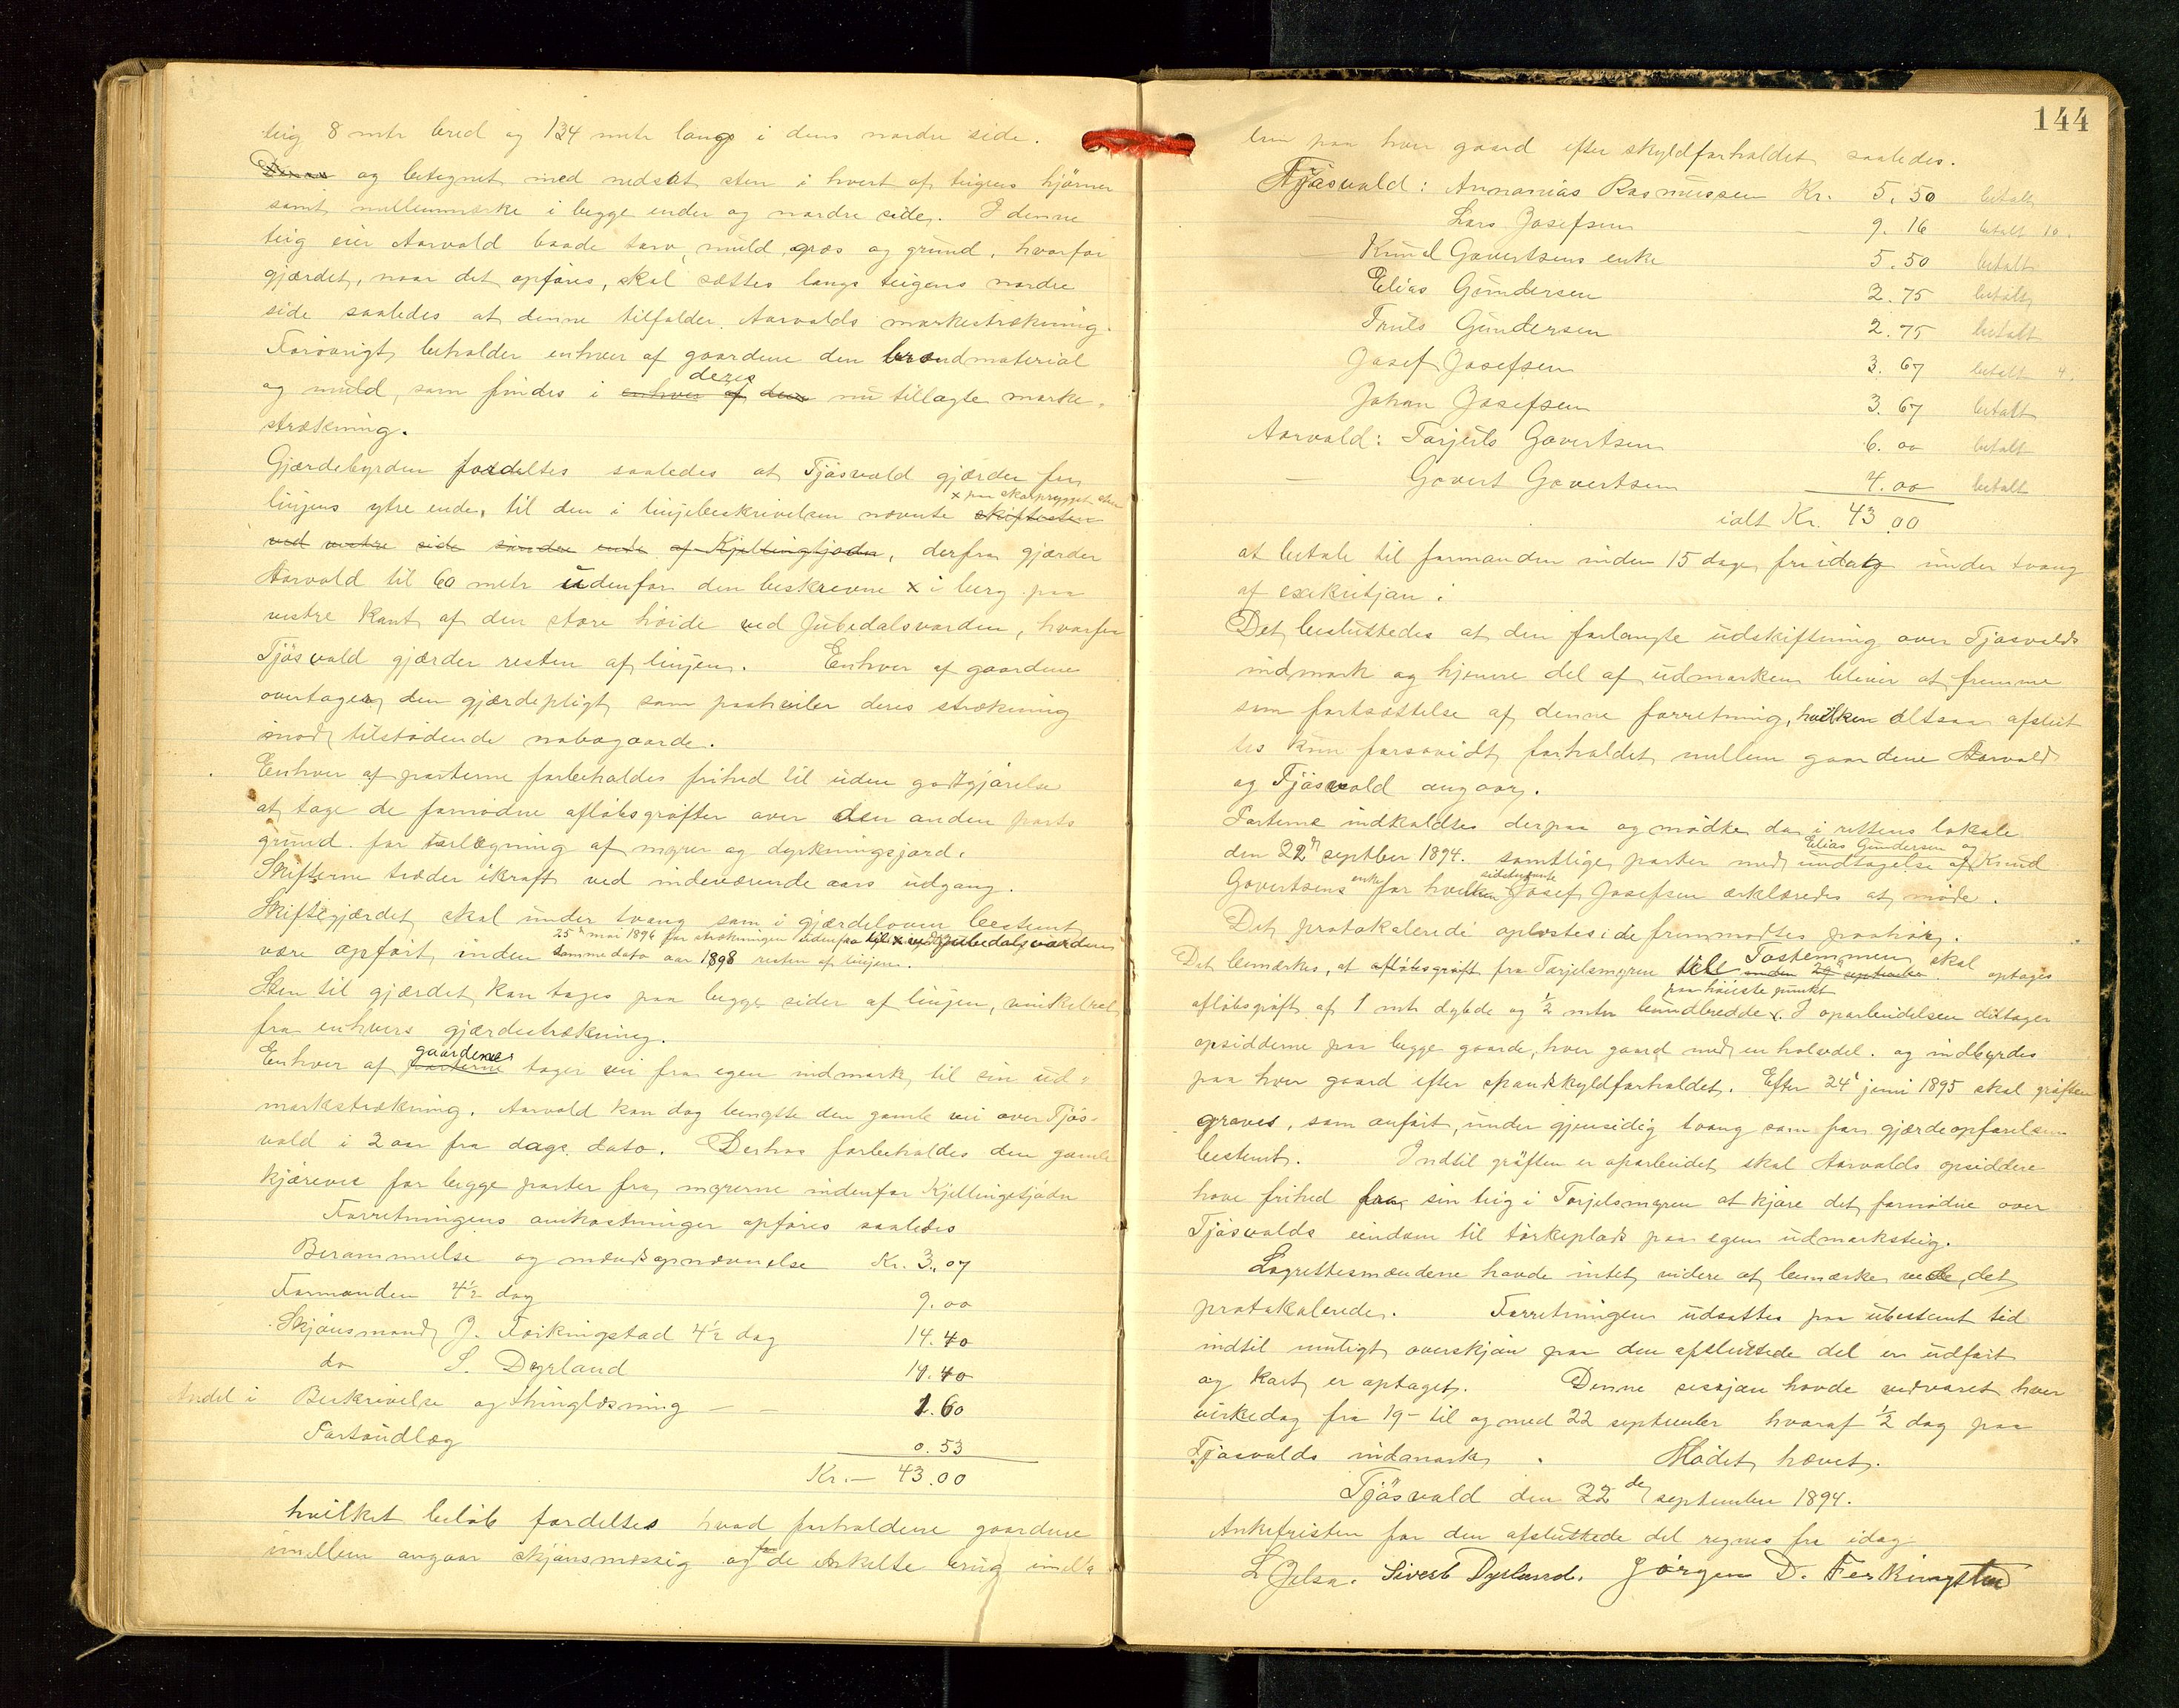 teig 8 mtr bred og 134 mtr lang i dens nordre side.
og betegnet med nedsat sten i hvert af teigens hjörner
samt mellemmærke i begge ender og nordre side. I denne
teig eier Aarvold baade torv, muld, græs og grund, hvorfor
gjærdet, naar det opföres, skal sættes langs teigens nordre
side saaledes at denne tilfalder Aarvolds markestrækning.
Forövrigt beholder enhver af gaardene den brændmaterial
og muld, som findes i enhver af den deres nu tillagte marke-
strækning.
Gjærdebyrden fordeltes saaledes at Tjösvold gjærder fra
linjens ytre ende, til den i linjebeskrivelsen nævnte skiftesten x paa skarprygget sten
ved vestre side söndre ende af Kjellingtjødn, derfra gjærder
Aarvold til 60 metr udenfor den beskrevne x i berg paa
vestre kant af den store höide ved Jubedalsvarden, hvorfra
Tjösvold gjærder resten af linjen. Enhver af gaardene
overtager den gjærdepligt som paahviler deres strækning
mod tilstödende nabogaarde.
Enhver af parterne forbeholdes frihed til uden godtgjörelse
at tage de fornödne aflöbsgröfter over den anden parts
grund for törlægning af myrer og dyrkningsjord.
Skifterne træder ikraft ved indeværende aars udgang.
Skiftegjærdet skal under tvang som i gjærdeloven bestemt
25de mai 1896 for strækningen udenfra til x ved Jubedalsvarden
være opfört inden samme dato aar 1898 resten af linjen.
Sten til gjærdet kan tages paa begge sider af linjen, vinkelret
fra enhvers gjærdestrækning.
Enhver af parterne gaardenes tager vei fra egen indmark til sin ud-
markstrækning. Aarvold kan dog benytte den gamle vei over Tjös-
vold i 2 aar fra dags dato. Derhos forbeholdes den gamle
kjörevei for begge parter fra myrerne indenfor Kjellingstjödn
Forretningens omkostninger opföres saaledes
Berammelse og mændsopnævnelse Kr. 3,07
Formanden 4½ dag 9.00
Skjönsmand J. Ferkingstad 4½ dag 14.40
do S. Dyrland 14.40
Andel i Beskrivelse og thinglæsning — — 1.60
Portoudlæg 0.53
Kr.— 43.00
hvilket belöb fordeltes hvad forholdene gaardene
imellem angaar skjönsmæssig og for de enkelte brug imel-
lem paa hver gaard efter skyldforholdet saaledes.
144
Tjösvold: Annanias Rasmussen Kr. 5.50 betalt
Lars Josefsen 9.16 betalt 10.
Knud Govertsens enke 5.50 betalt
Elias Gundersen 2.75 betalt
Truls Gundersen 2.75 betalt
Josef Josefsen 3.67 betalt 4.
Johan Josefsen 3.67 betalt
Aarvold: Torjuls Govertsen 6.00 betalt
— Govert Govertsen 4.00 betalt
ialt Kr. 43.00
at betale til formanden inden 15 dage fra idag under tvang
af exekutjon.
Det besluttedes at den forlangte udskiftning over Tjösvolds
indmark og hjemre del af udmarken bliver at fremme
som fortsættelse af denne forretning, hvilken altsaa afslut
tes kun forsaavidt forholdet mellem gaardene Aarvold
og Tjösvold angaar.
Parterne indkaldtes derpaa og mödte da i rettens lokale
den 22de septber 1894. samtlige parter med undtagelse af Elias Gundersen og Knud
Govertsens enke for hvilken sidstnævnte Josef Josefsen erklæredes at möde.
Det protokolerede oplæstes i de fremmödtes paahör.
Det bemærkes, at aflöbsgröft fra Torjelsmyren til Tostemmen skal inden 29de september optages
aflöbsgröft af 1 mtr dybde paa höieste punkt og ½ mtr bundbredde. I oparbeidelsen deltager
opsidderne paa begge gaarde, hver gaard med en halvdel. og indbyrdes
paa hver gaard efter skyldforholdet. Efter 24de juni 1895 skal gröften
graves, som anfört, under gjensidig tvang som for gjærdeopförelsen
bestemt. Indtil gröften er oparbeidet skal Aarvolds opsiddere
have frihed fra sin teig i Torjelsmyren at kjöre det fornödne over
Tjösvolds eiendom til törkeplads paa egen udmarksteig.
Lagrettesmændene havde intet videre at bemærke ved det
protokolerede. Forretningen udsattes paa ubestemt tid
indtil muligt overskjön paa den afsluttede del er udfört
og kart er optaget. Denne sessjon havde vedvaret hver
virkedag fra 19- til og med 22 september hvoraf ½ dag paa
Tjösvolds indmark. Mödet hævet.
Tjösvold den 22de september 1894.
Ankefristen for den afsluttede del regnes fra idag
L Jelsa. Sivert Dyrland. Jörgen D. Ferkingstad